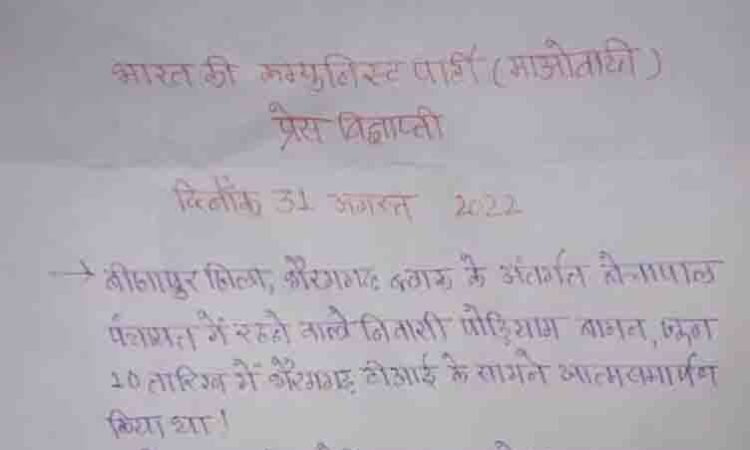 भारत की कम्युनिस्ट पार्टी (माओवादी)
प्रेस विज्ञाप्ती
दिनाँक 31 अगस्त 2022
→ बीजापुर जिला, भैरमगढ़ ब्लाक के अंतर्गत बेचापाल
पंचायत में रहने वाले निवासी पोड़ियाम बामन, जून
10 तारिख में भैरमगढ़ टीआई के सामने आत्मसमार्पण
किया था!